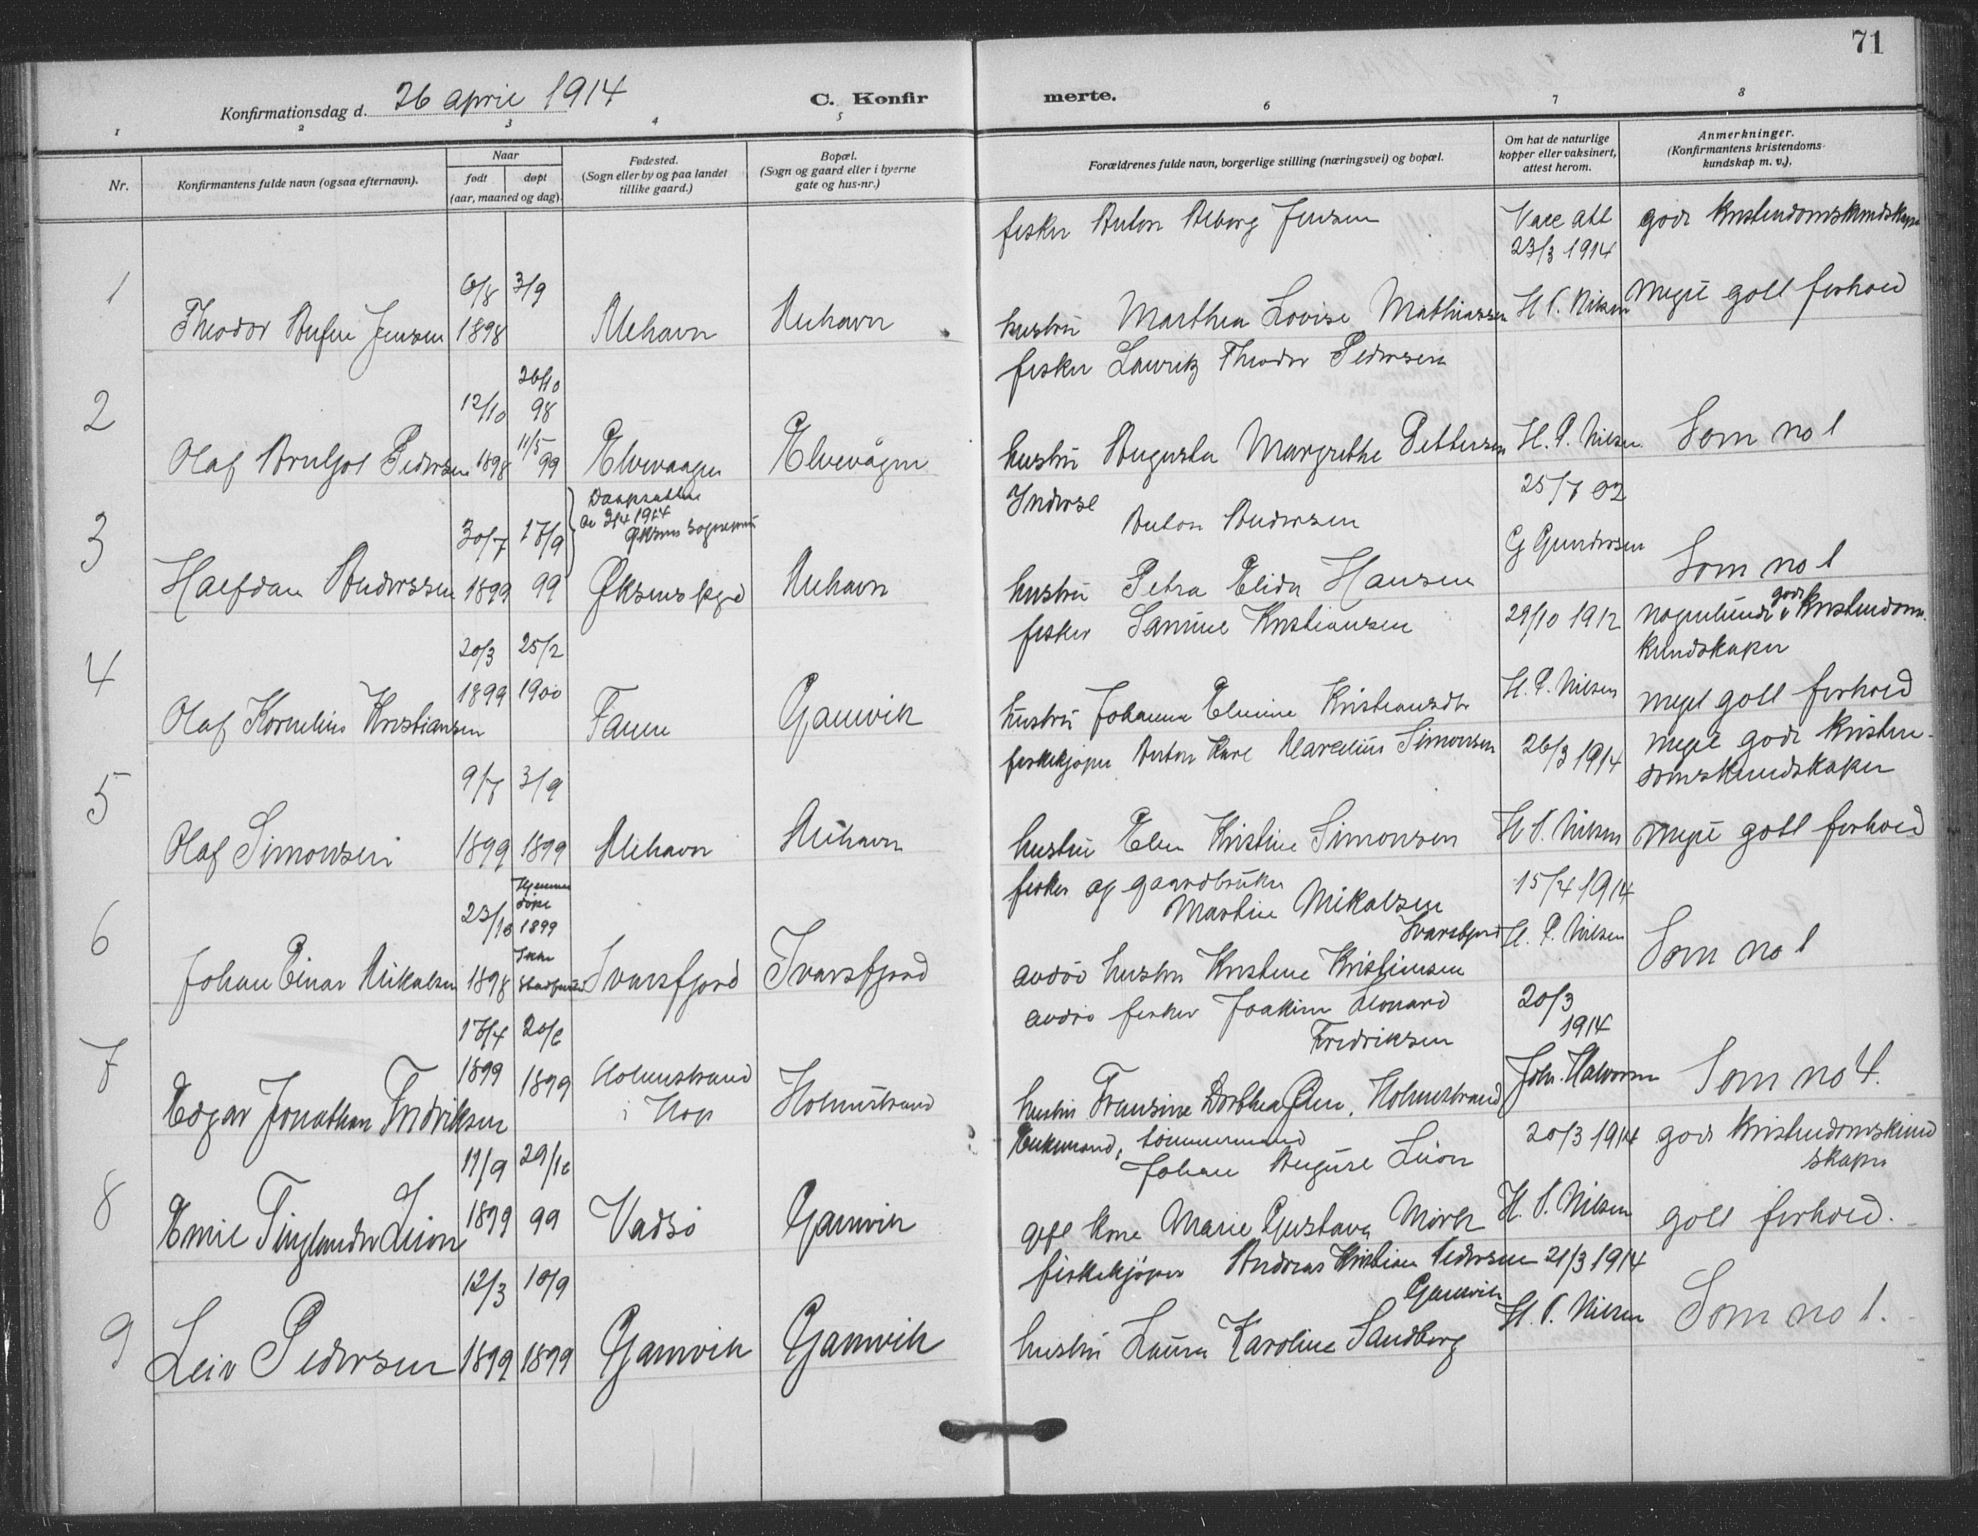 71
Konfirmationsdag d. 26 april 1914
C. Konfirmerte.
1 2 3 4 5 6 7 8
Nr.
Konfirmantens fulde navn (ogsaa efternavn).
Naar
født døpt
(aar, maaned og dag)
Fødested.
(Sogn eller by og paa landet
tillike gaard.)
Bopæl.
(Sogn og gaard eller i byerne
gate og hus-nr.)
Forældrenes fulde navn, borgerlige stilling (næringsvei) og bopæl.
Om hat de naturlige
kopper eller vaksinert,
attest herom.
Anmerkninger.
(Konfirmantens kristendoms-
kundskap m. v.).
1
Theodor Jensen
6/8
1898
3/9
Mehavn
Mehavn
fisker Anton Jensen
hustru Marthea Lovise Mathiassen
Vacc att
23/3 1914
H. P. Nilsen
gode kristendomskundskaper
Meget godt forhold
2
Olaf Pedersen
12/10
1898
26/10
98
11/5
99
Elvevaagen
Elvevågen
fisker Lauritz Theodor Pedersen
hustru Augusta Margrethe Pettersen
H. P. Nilsen
Som no 1
3
Halfdan Anderssen
30/7
1899
17/9
99
Daapsattest
av 3/4 1914
Øksnes sogneprest
Øksnes
Mehavn
Anton Andersen
hustru Petra Elida Hansen
25/7 02
G Gundersen
Som no 1
4
Olaf Kornelius Kristiansen
20/3
1899
25/2
1900
Gamvik
fisker Kristiansen
hustru Johanna Kristiansdtr
29/10 1912
H. P. Nilsen
nogenlunde gode kristendoms-
kundskaper
meget godt forhold
5
Olaf Simonsen
9/7
1899
3/9
1899
Mehavn
Mehavn
fiskekjøper Anton Karl Marelius Simonsen
hustru Elen Kristine Simonsen
26/3 1914
H. P. Nilsen
meget gode kristen-
domskundskaper
Meget godt forhold
6
Johan Einar Mikalsen
23/10
1898
Hjemme
døpt
1899
Ivarsfjord
Ivarsfjord
fisker og gaardbruker
Martin Mikalsen
Ivarsfjord
avdød hustru Kristine Kristiansen
15/4 1914
H. P. Nilsen
Som no 1
7
Edgar Jonathan Fredriksen
17/4
1899
20/6
1899
Holmstrand
i Hop
Holmstrand
avdød fisker Joakim Leonard
Fredriksen
hustru Fransine Dorthea Olsen, Holmstrand
20/3
1914
Joh. Halvorsen
Som no 4.
8
Emil
17/9
1899
29/10
99
Vadsö
Gamvik
Enkemand, tömmermand
Johan August
gift kone Marie Gustava Mörk
20/3 1914
H. P. Nilsen
gode kristendomskund
skaper
godt forhold.
9
Leiv Pedersen
12/3
1899
10/9
1899
Gamvik
Gamvik
fiskekjöper Andreas Kristian Pedersen
Gamvik
hustru Laura Karoline Sandberg
21/3 1914
H. P. Nilsen
Som no 1.